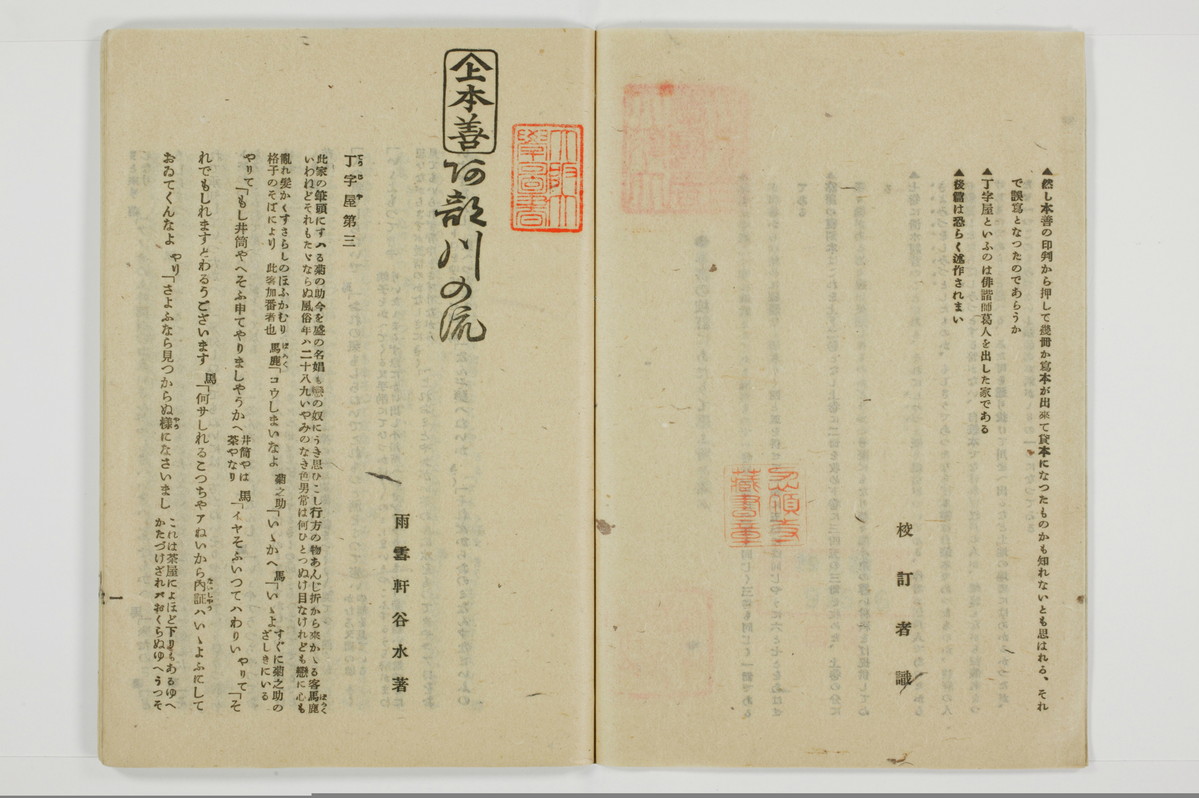 ▲然し本善の印判から押して幾冊か寫本が出来て貸本になつたものかも知れないとも思はれる、それ
で誤寫となつたのであらうか
▲丁字屋といふのは俳諧師葛人を出した家である
▲後篇は恐らく述作されまい
校訂者識
本善
阿部川の流
雨雲軒谷水著
丁字屋第三
此家の筆頭にすハる菊の助今を盛の名娼も戀の奴にうき思ひこし行方の物あんじ折から來かゝる客馬鹿
いわねどそれもたゞならぬ風俗年ハ二十八九いやみのなき色男常は何ひとつぬけ目なけれども戀に心も
亂れ髪かくすさらしのほふかむり
格子のそばにより
此客加番者也
馬鹿「コウしまいなよ
菊之助「いゝかへ
馬「いゝよ
すぐに菊之助の
ざしきにいる
やりて「もし井筒やへそふ申てやりましやうかへ
井筒やは
茶やなり
馬「イヤそふいつてハわりい
やりて「そ
れでもしれますとわるうございます
馬「何サしれるこつちやアねいから內証ハいゝよふにして
おゐてくんなよ
やり「さよふなら見つからぬ様になさいまし
これは茶屋によほど下りもあるゆへ
かたづけざれバおくらぬゆへうつそ
一